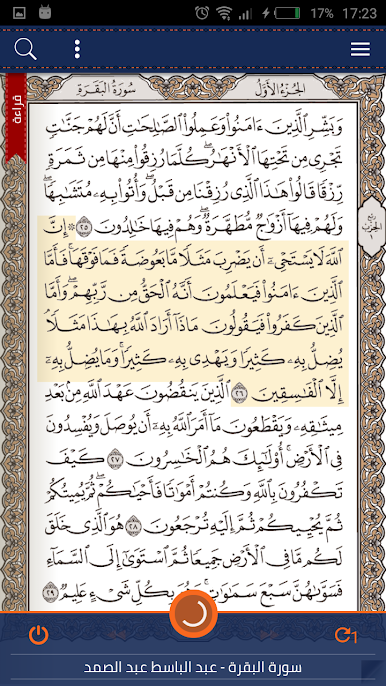 17% 17:23
قراءة
سورة البقرة
الجزء الأول
ربع الحزب ١
وَبَشِّرِ ٱلَّذِينَ ءَامَنُوا۟ وَعَمِلُوا۟ ٱلصَّـٰلِحَـٰتِ أَنَّ لَهُمْ جَنَّـٰتٍ
تَجْرِى مِن تَحْتِهَا ٱلْأَنْهَـٰرُ ۖ كُلَّمَا رُزِقُوا۟ مِنْهَا مِن ثَمَرَةٍ
رِّزْقًا ۙ قَالُوا۟ هَـٰذَا ٱلَّذِى رُزِقْنَا مِن قَبْلُ ۖ وَأُتُوا۟ بِهِۦ مُتَشَـٰبِهًا ۖ
وَلَهُمْ فِيهَآ أَزْوَٰجٌ مُّطَهَّرَةٌ ۖ وَهُمْ فِيهَا خَـٰلِدُونَ ٢٥ ۞ إِنَّ
ٱللَّهَ لَا يَسْتَحْىِۦٓ أَن يَضْرِبَ مَثَلًا مَّا بَعُوضَةً فَمَا فَوْقَهَا ۚ فَأَمَّا
ٱلَّذِينَ ءَامَنُوا۟ فَيَعْلَمُونَ أَنَّهُ ٱلْحَقُّ مِن رَّبِّهِمْ ۖ وَأَمَّا
ٱلَّذِينَ كَفَرُوا۟ فَيَقُولُونَ مَاذَآ أَرَادَ ٱللَّهُ بِهَـٰذَا مَثَلًا ۘ
يُضِلُّ بِهِۦ كَثِيرًا وَيَهْدِى بِهِۦ كَثِيرًا ۚ وَمَا يُضِلُّ بِهِۦٓ
إِلَّا ٱلْفَـٰسِقِينَ ٢٦ ٱلَّذِينَ يَنقُضُونَ عَهْدَ ٱللَّهِ مِنۢ بَعْدِ
مِيثَـٰقِهِۦ وَيَقْطَعُونَ مَآ أَمَرَ ٱللَّهُ بِهِۦٓ أَن يُوصَلَ وَيُفْسِدُونَ
فِى ٱلْأَرْضِ ۚ أُو۟لَـٰٓئِكَ هُمُ ٱلْخَـٰسِرُونَ ٢٧ كَيْفَ
تَكْفُرُونَ بِٱللَّهِ وَكُنتُمْ أَمْوَٰتًا فَأَحْيَـٰكُمْ ۖ ثُمَّ يُمِيتُكُمْ
ثُمَّ يُحْيِيكُمْ ثُمَّ إِلَيْهِ تُرْجَعُونَ ٢٨ هُوَ ٱلَّذِى خَلَقَ
لَكُم مَّا فِى ٱلْأَرْضِ جَمِيعًا ثُمَّ ٱسْتَوَىٰٓ إِلَى ٱلسَّمَآءِ
فَسَوَّىٰهُنَّ سَبْعَ سَمَـٰوَٰتٍ ۚ وَهُوَ بِكُلِّ شَىْءٍ عَلِيمٌ ٢٩
1
سورة البقرة - عبد الباسط عبد الصمد